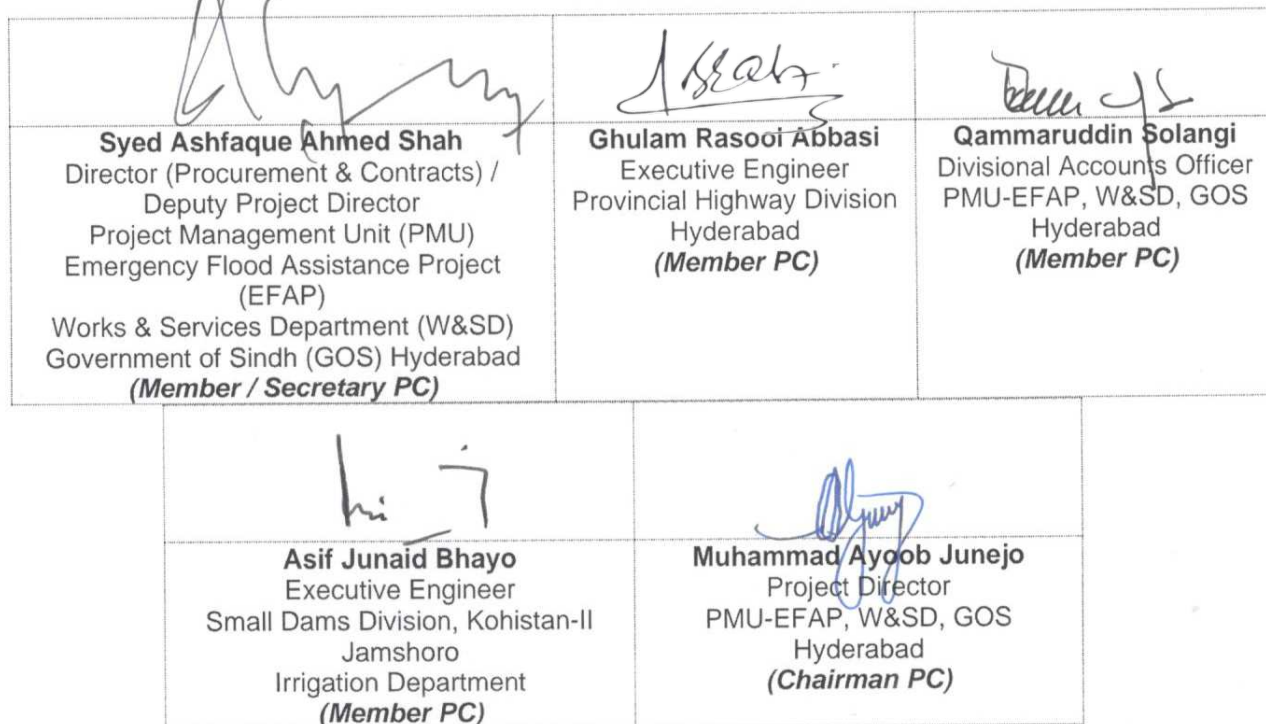 Syed Ashfaque Ahmed Shah
Director (Procurement & Contracts) /
Deputy Project Director
Project Management Unit (PMU)
Emergency Flood Assistance Project
(EFAP)
Works & Services Department (W&SD)
Government of Sindh (GOS) Hyderabad
(Member / Secretary PC)
Ghulam Rasool Abbasi
Executive Engineer
Provincial Highway Division
Hyderabad
(Member PC)
Qammaruddin Solangi
Divisional Accounts Officer
PMU-EFAP, W&SD, GOS
Hyderabad
(Member PC)
Asif Junaid Bhayo
Executive Engineer
Small Dams Division, Kohistan-II
Jamshoro
Irrigation Department
(Member PC)
Muhammad Ayoob Junejo
Project Director
PMU-EFAP, W&SD, GOS
Hyderabad
(Chairman PC)